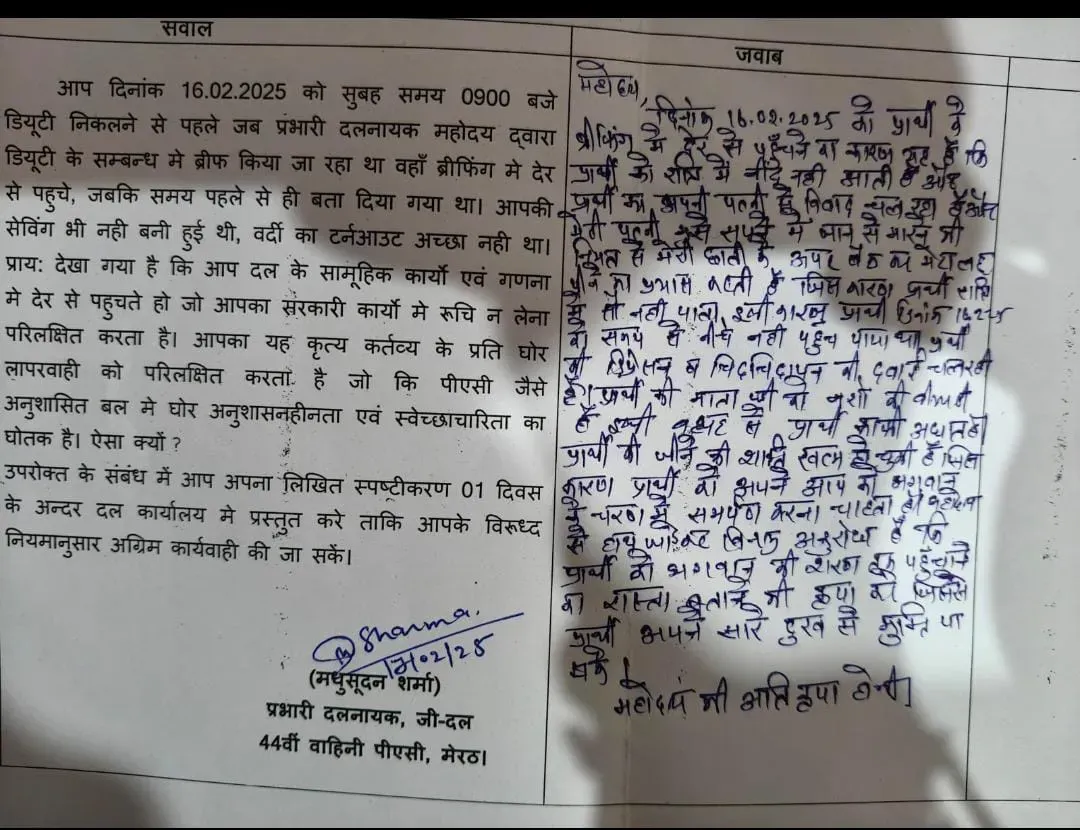 सवाल
आप दिनांक 16.02.2025 को सुबह समय 0900 बजे
डियूटी निकलने से पहले जब प्रभारी दलनायक महोदय द्वारा
डियूटी के सम्बन्ध मे ब्रीफ किया जा रहा था वहाँ ब्रीफिंग मे देर
से पहुचे, जबकि समय पहले से ही बता दिया गया था। आपकी
सेविंग भी नही बनी हुई थी, वर्दी का टर्नआउट अच्छा नही था।
प्राय: देखा गया है कि आप दल के सामूहिक कार्यो एवं गणना
मे देर से पहुचते हो जो आपका सरकारी कार्यो मे रूचि न लेना
परिलक्षित करता है। आपका यह कृत्य कर्तव्य के प्रति घोर
लापरवाही को परिलक्षित करता है जो कि पीएसी जैसे
अनुशासित बल मे घोर अनुशासनहीनता एवं स्वेच्छाचारिता का
घोतक है। ऐसा क्यों ?
उपरोक्त के संबंध में आप अपना लिखित स्पष्टीकरण 01 दिवस
के अन्दर दल कार्यालय मे प्रस्तुत करे ताकि आपके विरूध्द
नियमानुसार अग्रिम कार्यवाही की जा सकें।
Sharma
17/02/25
(मधुसूदन शर्मा)
प्रभारी दलनायक, जी-दल
44वीं वाहिनी पीएसी, मेरठ।
जवाब
महोदय,
दिनांक 16.02.2025 को प्रार्थी के
ब्रीफिंग मे देर से पहुँचने का कारण यह है कि
प्रार्थी को रात्रि में नींद नही आती है और
प्रार्थी का अपनी पत्नी से विवाद चल रहा है और
मेरी पत्नी मुझे सपने में जान से मारने की
नियत से मेरी छाती के ऊपर बैठ कर मेरा लहू
पीने का प्रयास करती है जिस कारण प्रार्थी रात्रि
में सो नही पाता इसी कारण प्रार्थी दिनांक 16.2.25
को समय से नीचे नही पहुंच पाया था प्रार्थी
की डिप्रेसन व चिडचिडापन की दवाई चल रही
है। प्रार्थी की माता जी को नशो की बीमारी
है इसकी वजह से प्रार्थी काफी
प्रार्थी की जीने की शक्ति खत्म हो चुकी है जिस
कारण प्रार्थी को अपने आप को भगवान
के चरण में समर्पण करना चाहता है। महोदय
से हाथ जोड़कर विनम्र अनुरोध है कि
प्रार्थी को भगवान की शरण तक पहुँचाने
का रास्ता बताने की कृपा करें जिससे
प्रार्थी अपने सारे दुख से मुक्ति पा
सके।
महोदय की अति कृपा होगी।